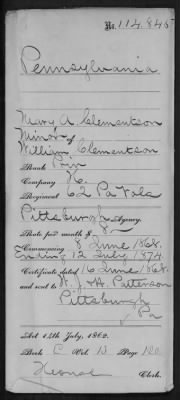 No. 114.845
Pennsylvania
Mary A. Clementson
Minor of
William Clementson
Rank Priv
Company K.
Regiment 62 Pa Vols
Pittsburgh Agency.
Rate per month $ 8—
Commencing 8 June 1868.
Ending 12 July 1874.
Certificate dated 16 June 1868.
and sent to W. J. & A. Patterson
Pittsburgh
Pa
Act 14th July, 1862.
Book C Vol. 13 Page 120
Clerk.